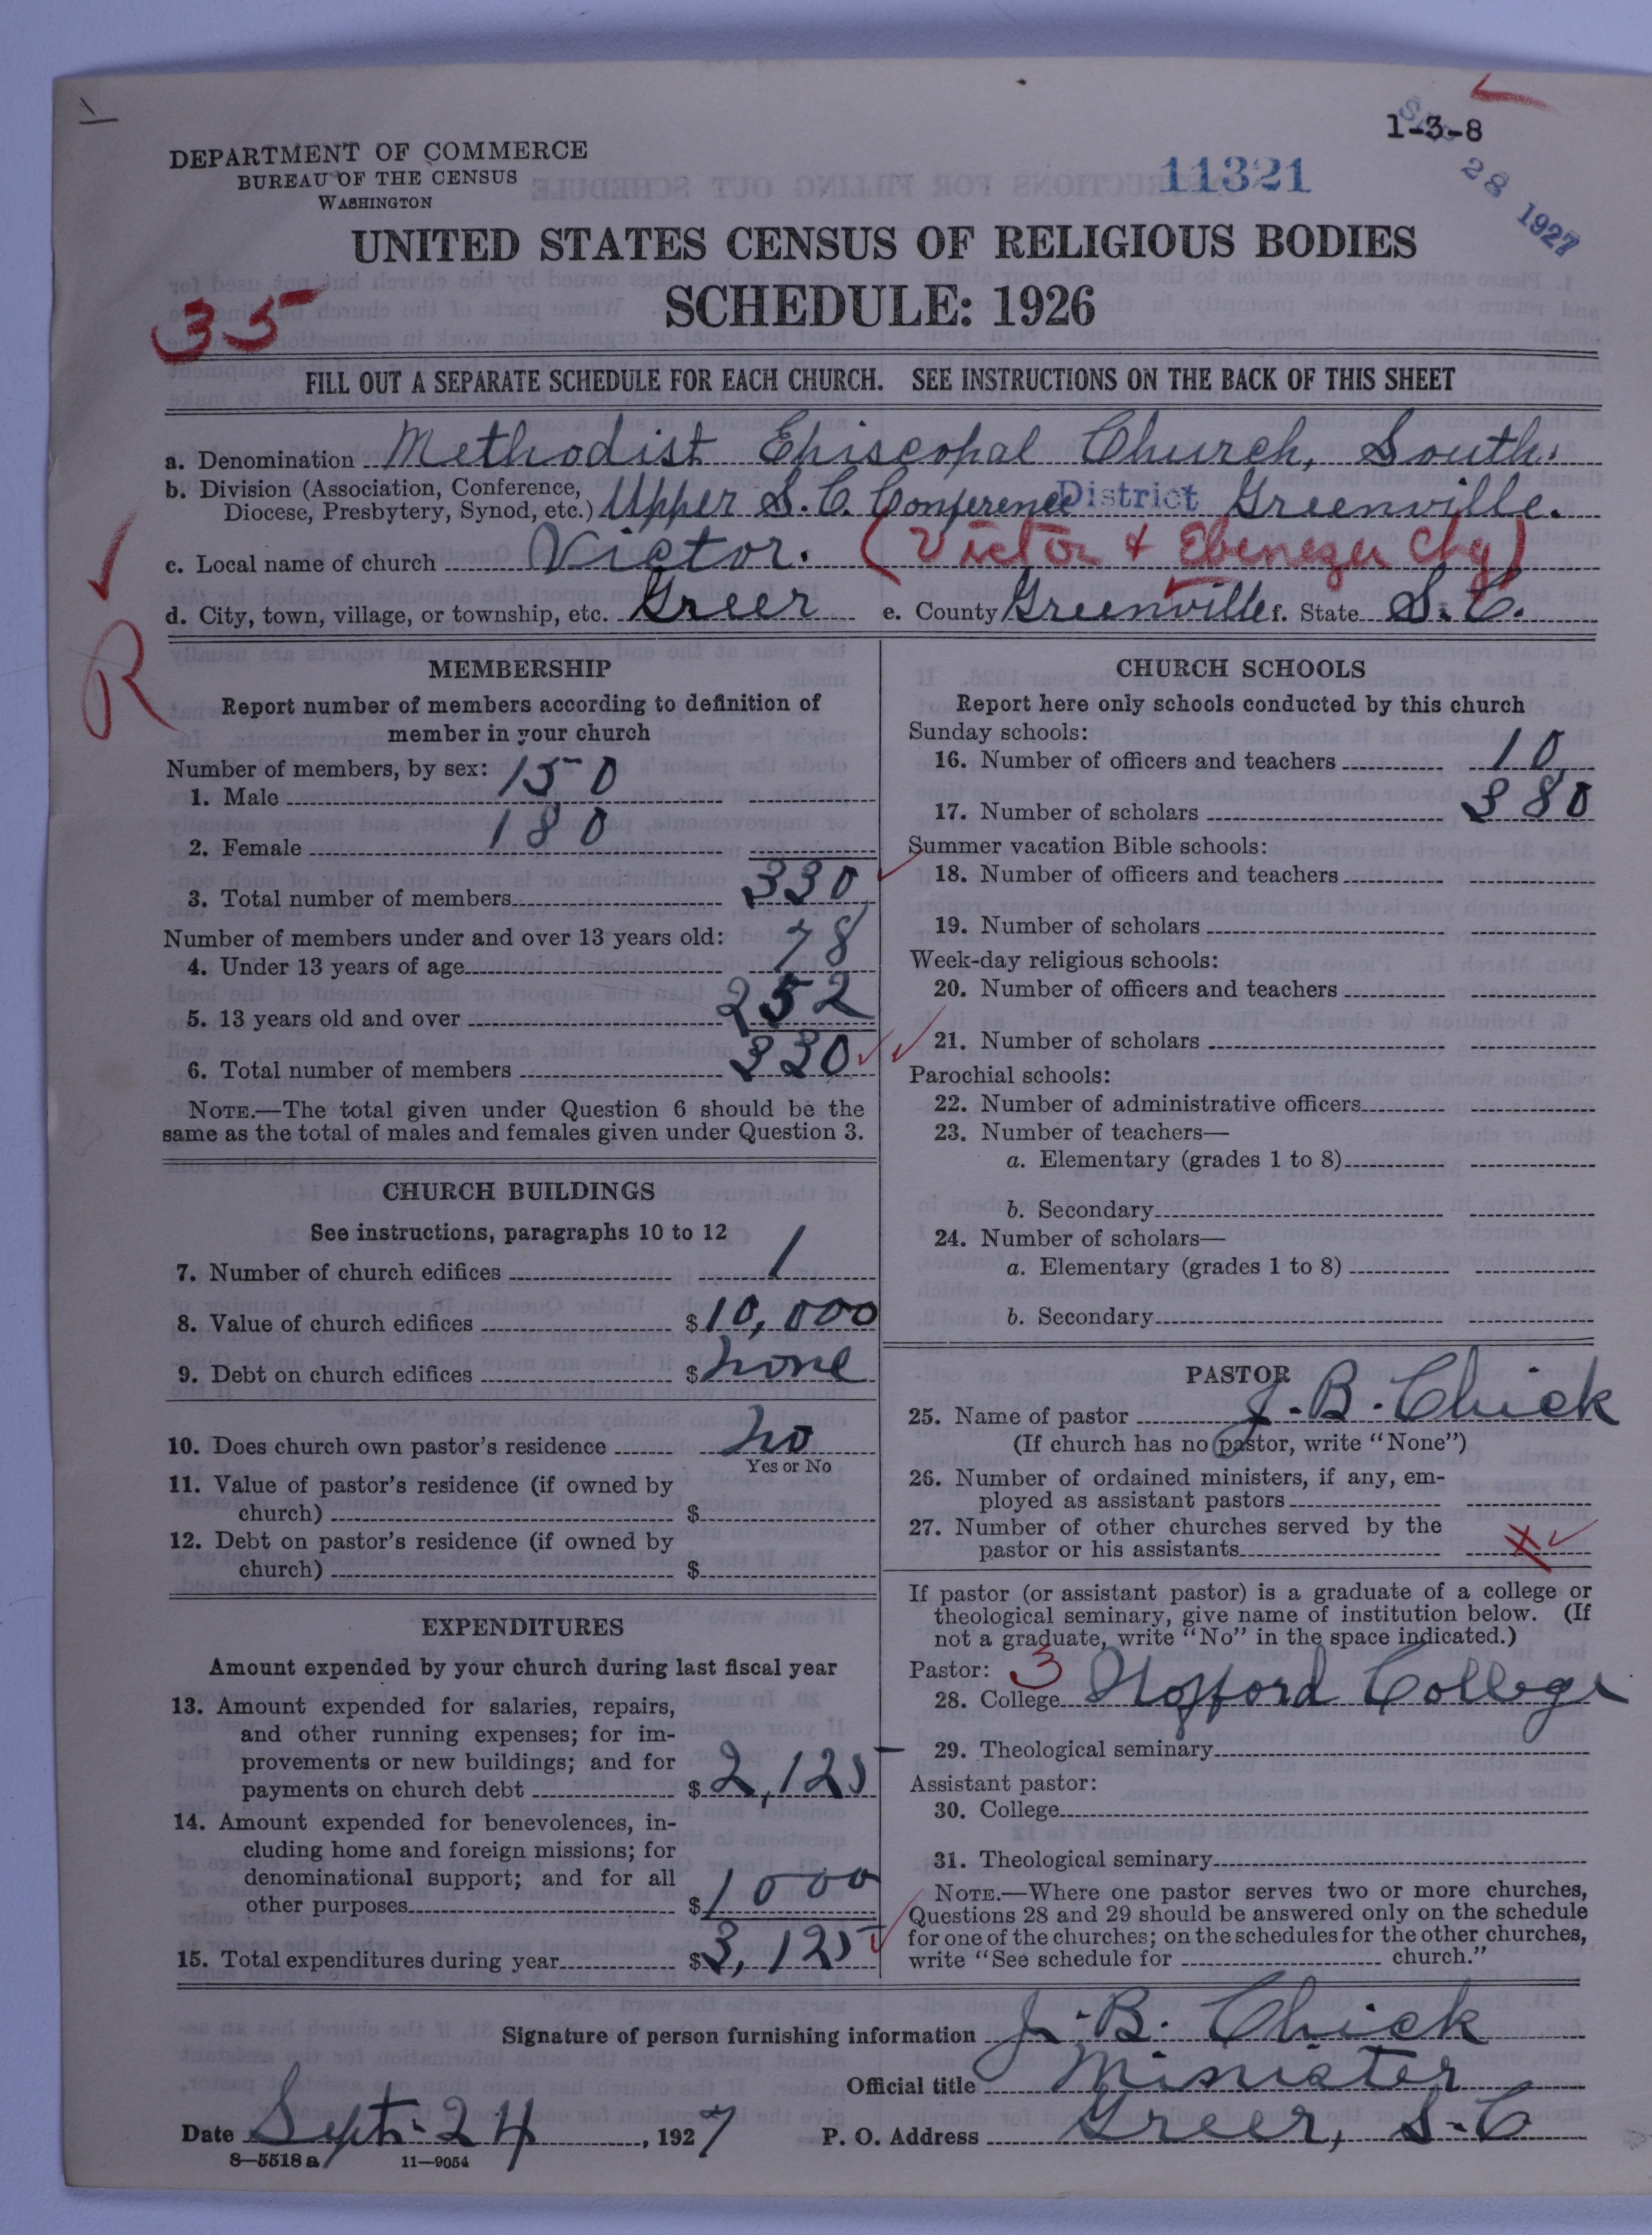 1-3-8
DEPARTMENT OF COMMERCE
BUREAU OF THE CENSUS
WASHINGTON
11321
28 1927
UNITED STATES CENSUS OF RELIGIOUS BODIES
SCHEDULE: 1926
35
FILL OUT A SEPARATE SCHEDULE FOR EACH CHURCH. SEE INSTRUCTIONS ON THE BACK OF THIS SHEET
a. Denomination Methodist Episcopal Church, South.
b. Division (Association, Conference, Diocese, Presbytery, Synod, etc.) Upper S. C. Conference District Greenville.
c. Local name of church Victor. (Victor + Ebenezer Chg)
d. City, town, village, or township, etc. Greer e. County Greenville f. State S. C.
R
MEMBERSHIP
Report number of members according to definition of
member in your church
Number of members, by sex:
1. Male 150
2. Female 180
3. Total number of members 330
Number of members under and over 13 years old:
4. Under 13 years of age 78
5. 13 years old and over 252
6. Total number of members 330
NOTE.—The total given under Question 6 should be the
same as the total of males and females given under Question 3.
CHURCH BUILDINGS
See instructions, paragraphs 10 to 12
7. Number of church edifices 1
8. Value of church edifices $10,000
9. Debt on church edifices $none
10. Does church own pastor's residence no
Yes or No
11. Value of pastor's residence (if owned by
church) $
12. Debt on pastor's residence (if owned by
church) $
EXPENDITURES
Amount expended by your church during last fiscal year
13. Amount expended for salaries, repairs,
and other running expenses; for im-
provements or new buildings; and for
payments on church debt $2,125
14. Amount expended for benevolences, in-
cluding home and foreign missions; for
denominational support; and for all
other purposes $1000
15. Total expenditures during year $3,125
CHURCH SCHOOLS
Report here only schools conducted by this church
Sunday schools:
16. Number of officers and teachers 10
17. Number of scholars 380
Summer vacation Bible schools:
18. Number of officers and teachers
19. Number of scholars
Week-day religious schools:
20. Number of officers and teachers
21. Number of scholars
Parochial schools:
22. Number of administrative officers
23. Number of teachers—
a. Elementary (grades 1 to 8)
b. Secondary
24. Number of scholars—
a. Elementary (grades 1 to 8)
b. Secondary
PASTOR
25. Name of pastor J. B. Chick
(If church has no pastor, write "None")
26. Number of ordained ministers, if any, em-
ployed as assistant pastors
27. Number of other churches served by the
pastor or his assistants
If pastor (or assistant pastor) is a graduate of a college or
theological seminary, give name of institution below. (If
not a graduate, write "No" in the space indicated.)
Pastor: 3
28. College Wofford College
29. Theological seminary
Assistant pastor:
30. College
31. Theological seminary
NOTE.—Where one pastor serves two or more churches,
Questions 28 and 29 should be answered only on the schedule
for one of the churches; on the schedules for the other churches,
write "See schedule for church."
Signature of person furnishing information J. B. Chick
Official title Minister
Date Sept. 24, 1927 P. O. Address Greer, S. C
8—5518a 11—9054